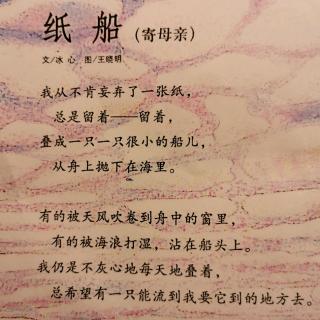 纸船（寄母亲）
文/冰心 图/王晓明
我从不肯妄弃了一张纸，
总是留着——留着，
叠成一只一只很小的船儿，
从舟上抛下在海里。
有的被天风吹卷到舟中的窗里，
有的被海浪打湿，沾在船头上。
我仍是不灰心地每天地叠着，
总希望有一只能流到我要它到的地方去。